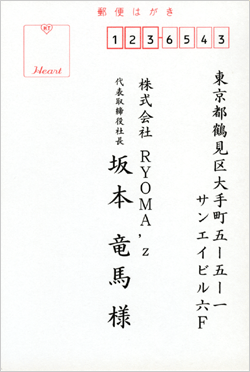 郵便はがき
123-6543
Heart
東京都鶴見区大手町五ー五ー一
サンエイビル六F
株式会社 RYOMA'z
代表取締役社長
坂本 竜馬 様